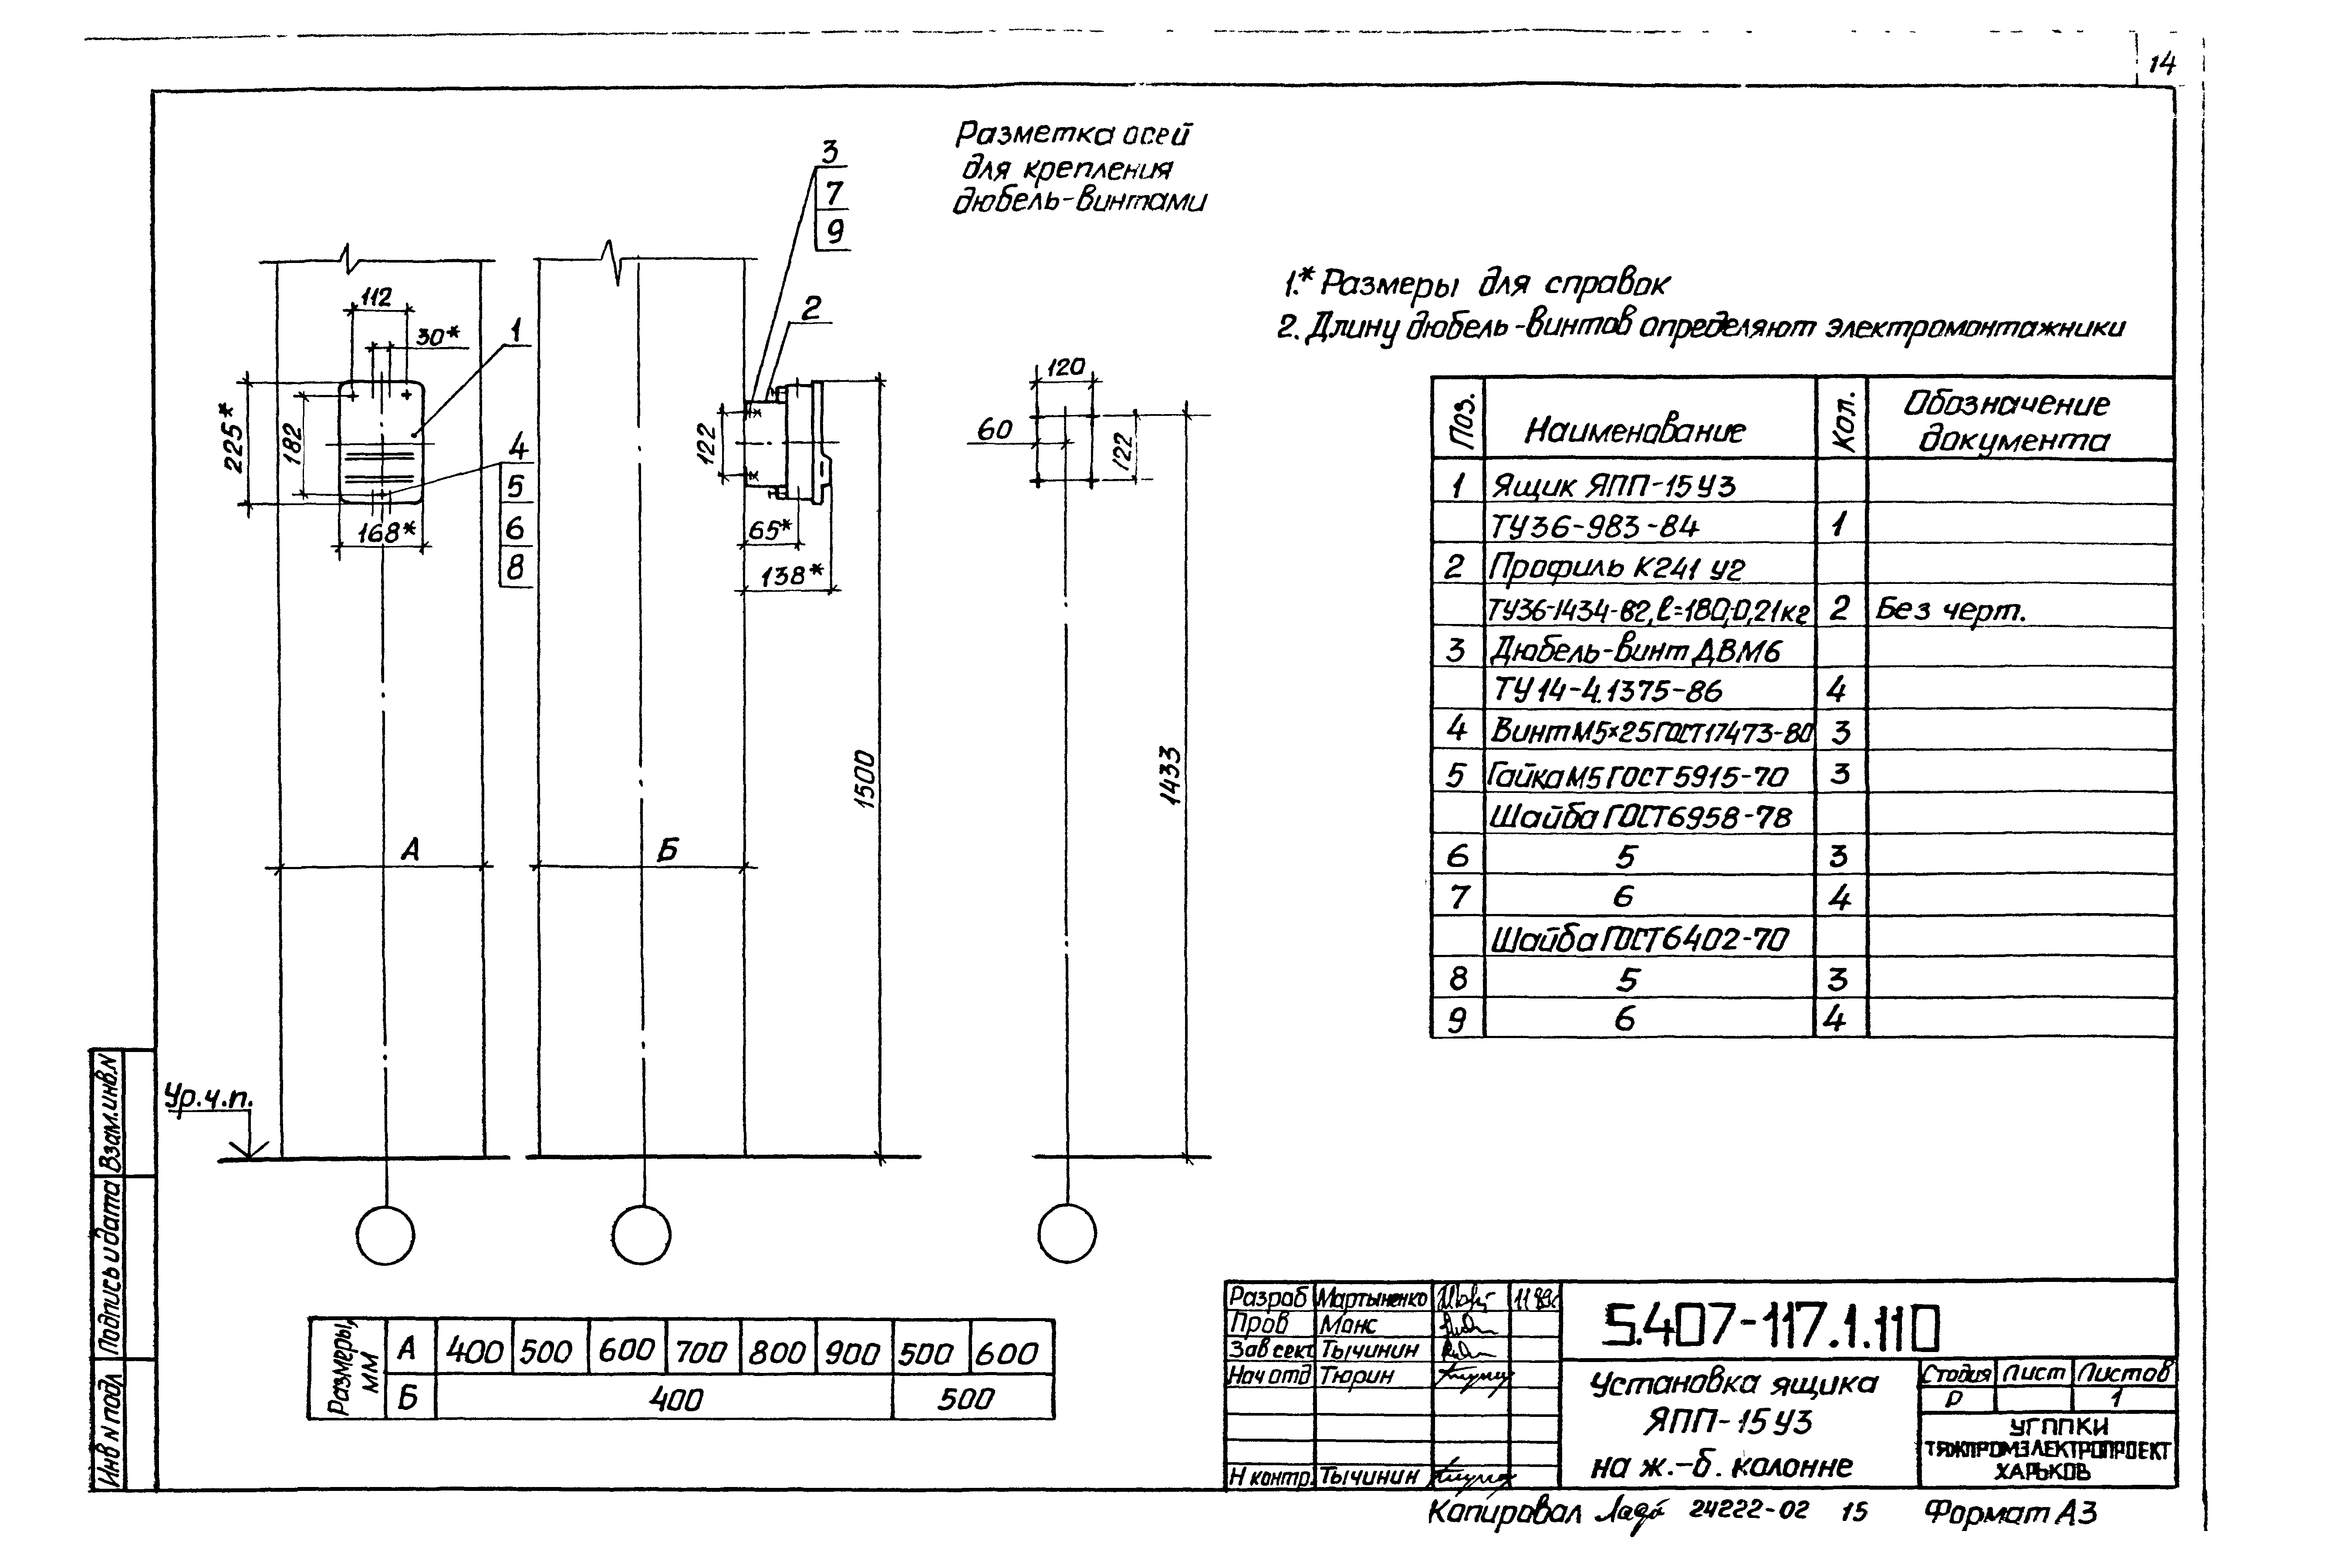 14
Разметка осей
для крепления
дюбель-винтами
3
7
9
2
112
30*
1
225*
182
168*
4
5
6
8
122
65*
138*
1500
А
Б
120
60
122
1433
Ур.ч.п.
1.* Размеры для справок
2. Длину дюбель-винтов определяют электромонтажники
Поз. Наименование Кол. Обозначение документа
1 Ящик ЯПП-15У3
ТУ36-983-84 1
2 Профиль К241 У2
ТУ36-1434-82, ℓ=180; 0,21кг 2 Без черт.
3 Дюбель-винт ДВМ6
ТУ 14-4.1375-86 4
4 Винт М5×25 ГОСТ 17473-80 3
5 Гайка М5 ГОСТ 5915-70 3
Шайба ГОСТ 6958-78
6 5 3
7 6 4
Шайба ГОСТ 6402-70
8 5 3
9 6 4
Размеры, мм
А 400 500 600 700 800 900 500 600
Б 400 500
Взам.инв.N
Подпись и дата
Инв N подл
Разраб Мартыненко 11.89г
Пров Манс
Зав сект Тычинин
Нач отд Тюрин
Н контр. Тычинин
5.407-117.1.110
Установка ящика
ЯПП-15У3
на ж.-б. колонне
Стадия Лист Листов
Р 1
УГППКИ
ТЯЖПРОМЭЛЕКТРОПРОЕКТ
ХАРЬКОВ
Копировал 24222-02 15 Формат А3